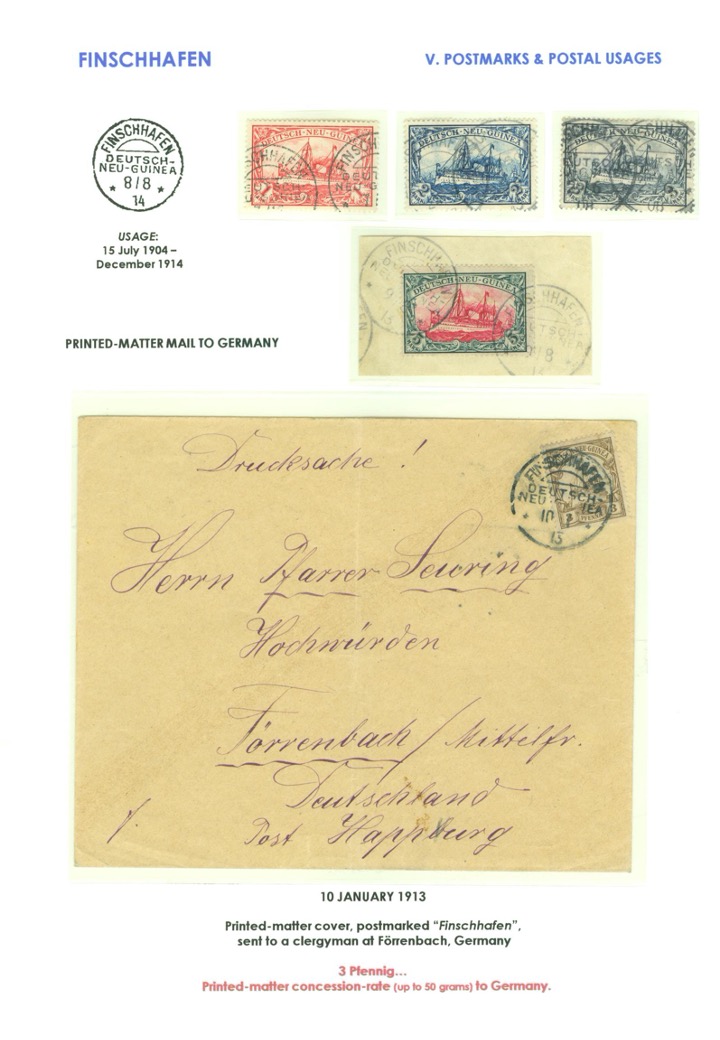 FINSCHHAFEN
V. POSTMARKS & POSTAL USAGES
FINSCHHAFEN
DEUTSCH-
NEU-GUINEA
* 8/8 *
14
DEUTSCH-NEU-GUINEA
DEUTSCH-NEU-GUINEA
DEUTSCH-NEU-GUINEA
USAGE:
15 July 1904 –
December 1914
FINSCHHAFEN
DEUTSCH-NEU-GUINEA
PRINTED-MATTER MAIL TO GERMANY
Drucksache!
FINSCHHAFEN
DEUTSCH-
13
Herrn Pfarrer Seuring
Hochwürden
Förrenbach / Mittelfr.
Deutschland
Post Happburg
10 JANUARY 1913
Printed-matter cover, postmarked “Finschhafen”,
sent to a clergyman at Förrenbach, Germany
3 Pfennig...
Printed-matter concession-rate (up to 50 grams) to Germany.